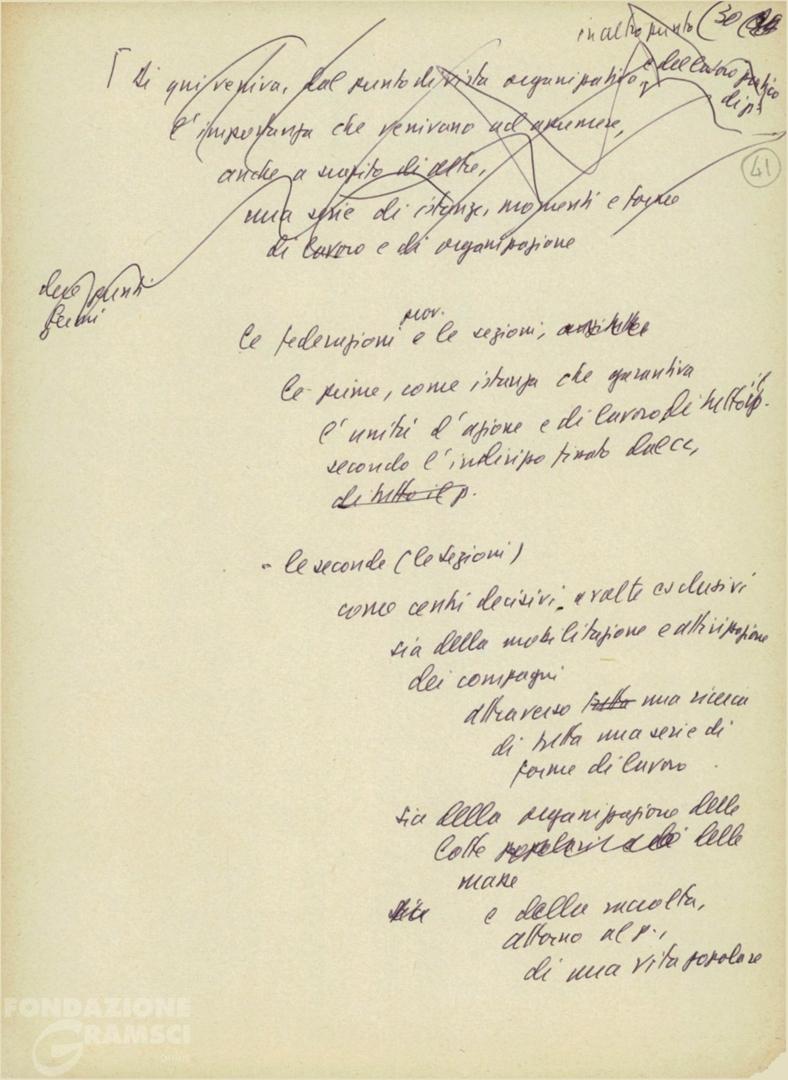 in altro punto (30
[ Di qui veniva, dal punto di vista organizzativo, e del lavoro pratico
di p.
l'importanza che venivano ad assumere,
41
anche a scapito di altre,
una serie di istanze, momenti e forme
di lavoro e di organizzazione
due punti
fermi
prov.
le federazioni e le sezioni,
le prime, come istanza che garantiva
l'unità d'azione e di lavoro di tutto il p.
secondo l'indirizzo fissato dal CC,
di tutto il p.
- le seconde (le sezioni)
come centri decisivi, a volte esclusivi
sia della mobilitazione e attivizzazione
dei compagni
attraverso tutta una ricerca
di tutta una serie di
forme di lavoro
sia della organizzazione delle
lotte delle
masse
e della raccolta,
attorno al p.,
di una vita popolare
FONDAZIONE
GRAMSCI